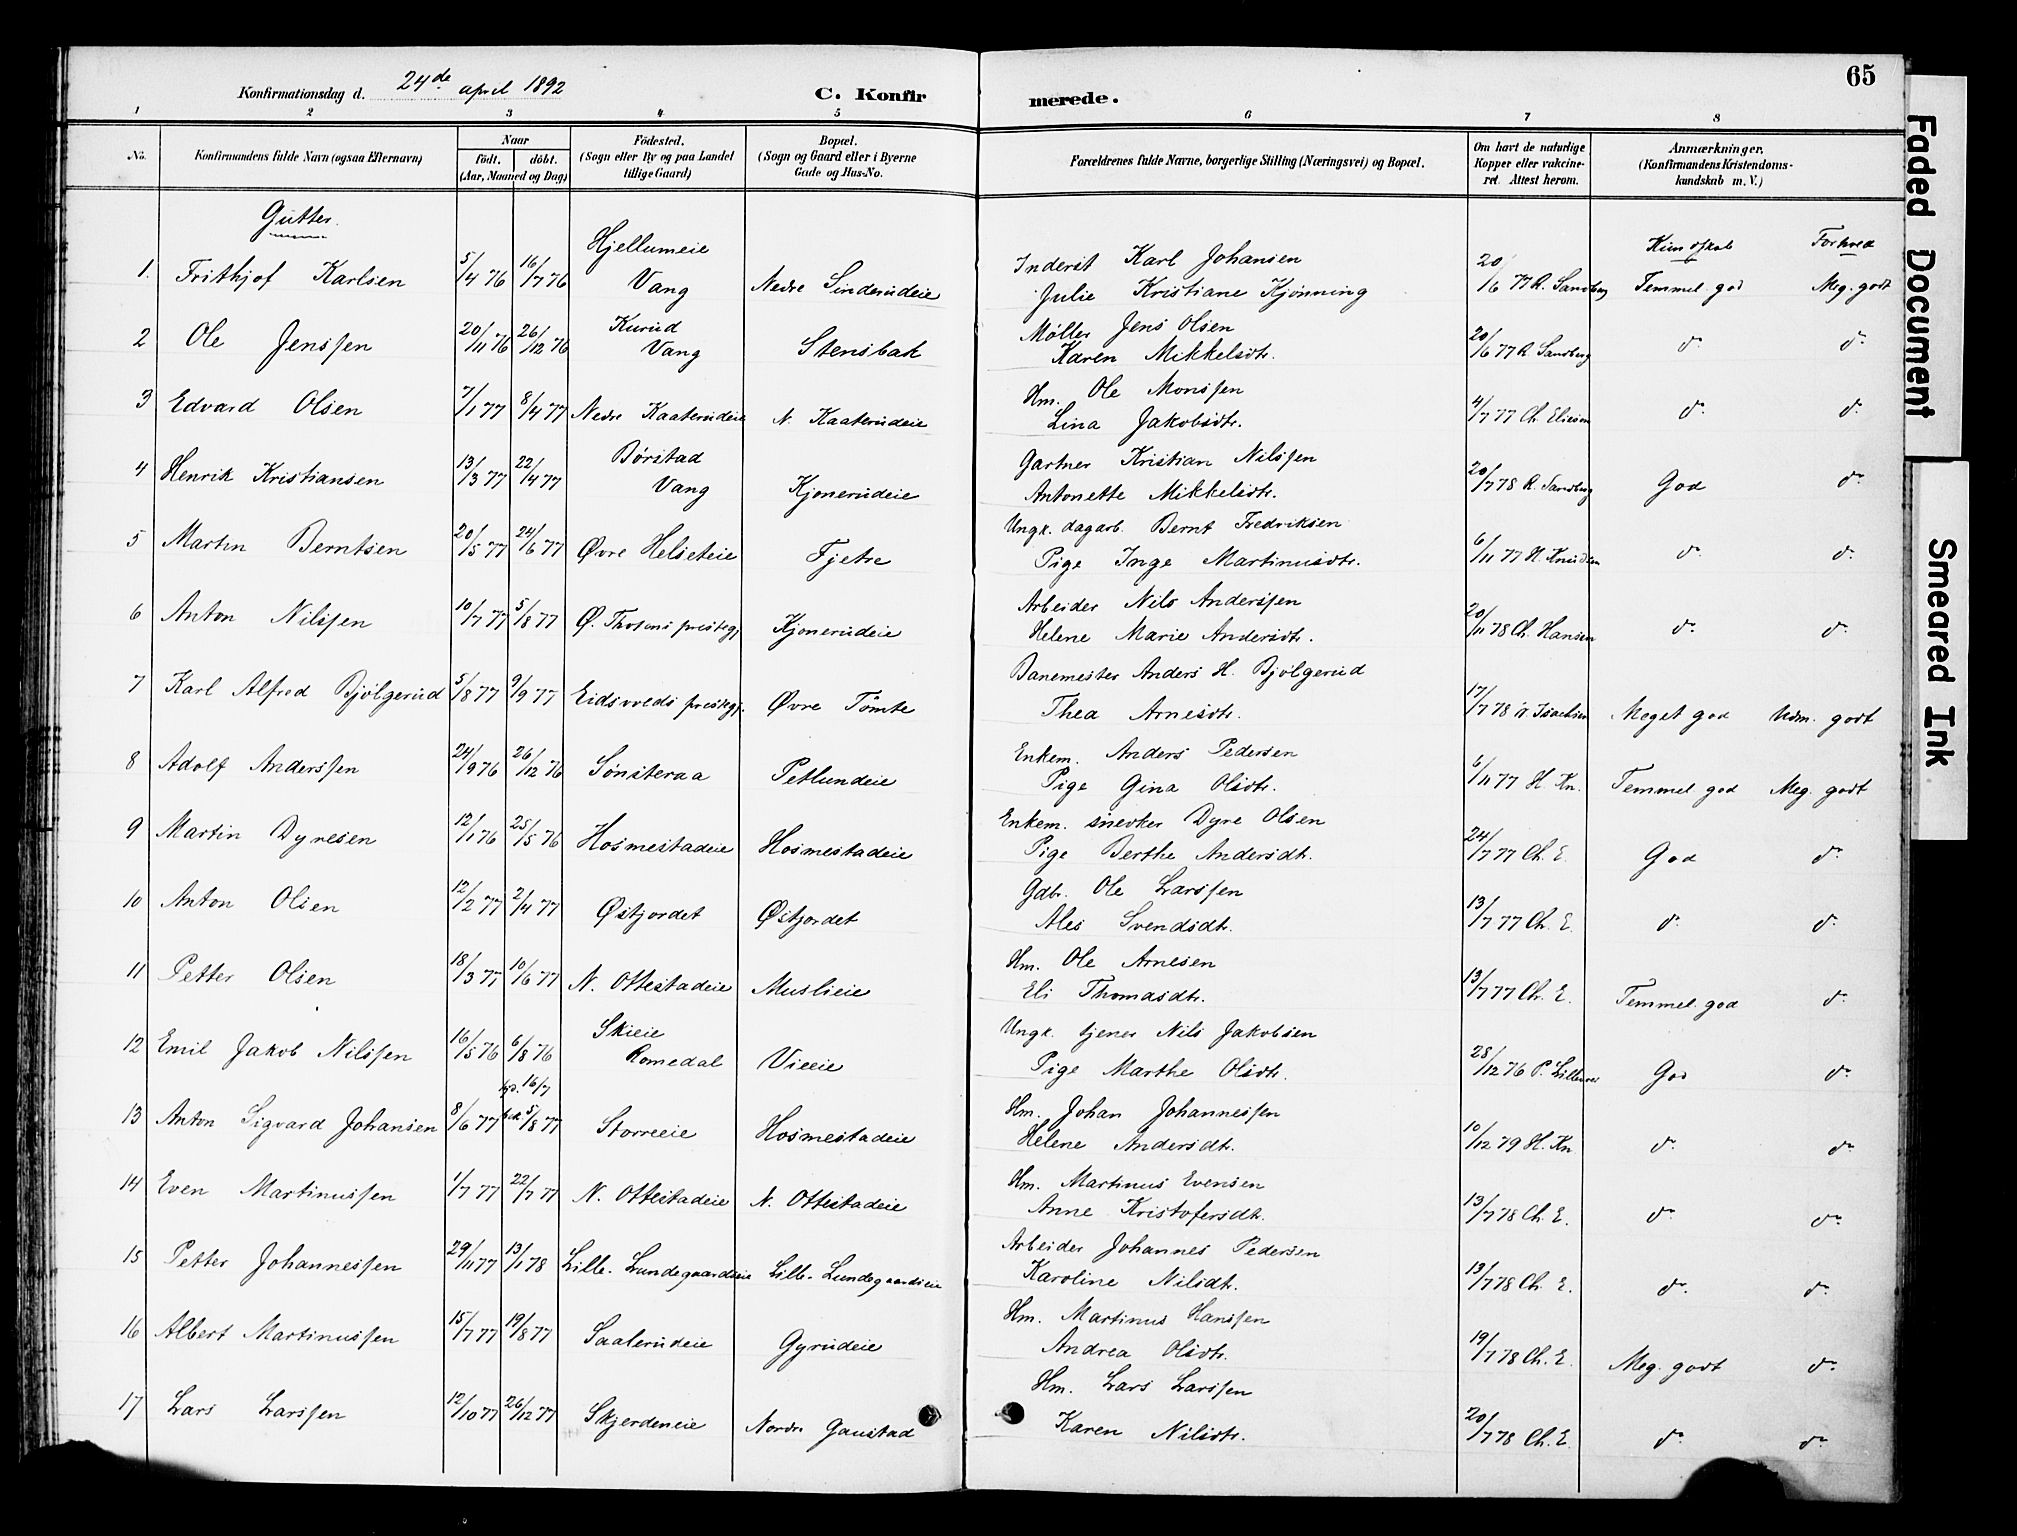 65
Konfirmationsdag d. 24de april 1892
C. Konfirmerede.
1 2 3 4 5 6 7 8
No.
Konfirmandens fulde Navn (ogsaa Efternavn)
Naar
födt. döbt.
(Aar, Maaned og Dag)
Födested.
(Sogn eller By og paa Landet
tillige Gaard)
Bopæl.
(Sogn og Gaard eller i Byerne
Gade og Hus-No.
Forældrenes fulde Navne, borgerlige Stilling (Næringsvei) og Bopæl.
Om havt de naturlige
Kopper eller vakcine-
ret. Attest herom.
Anmærkninger,
(Konfirmandens Kristendoms-
kundskab m. V.)
Gutter.
Kundskab Forhold
1. Frithjof Karlsen 5/4 76 16/7 76 Hjellumeie Vang Nedre Sinderudeie Inderst Karl Johansen 20/6 77 R. Sandberg Temmel god Meg. godt
Julie Kristiane Kjønning
2 Ole Jenssen 20/11 76 26/12 76 Kurud Vang Stensbak Møller Jens Olsen 20/6 77 R. Sandberg do do
Karen Mikkelsdtr.
3 Edvard Olsen 7/1 77 8/4 77 Nedre Kaaterudeie N. Kaaterudeie Hm. Ole Monssen 4/7 77 Ch. Eliesen do do
Lina Jakobsdtr.
4 Henrik Kristiansen 13/3 77 22/4 77 Børstad Vang Kjonerudeie Gartner Kristian Nilssen 20/7 78 R. Sandberg God do
Antonette Mikkelsdtr.
5 Martin Berntsen 20/5 77 24/6 77 Øvre Helseteie Fjetre Ungk. dagarb. Bernt Fredriksen 6/11 77 H. Knudsen do do
Pige Inge Martinusdtr.
6 Anton Nilssen 10/7 77 5/8 77 Ø. Thotens prestegj. Kjonerudeie Arbeider Nils Anderssen 20/11 78 Ch. Hansen do do
Helene Marie Andersdtr.
7 Karl Alfred Bjølgerud 5/8 77 9/9 77 Eidsvolds prestegj. Øvre Tømte Banemester Anders H. Bjølgerud 17/7 78 Isachsen Meget god Udm. godt
Thea Arnesdtr.
8 Adolf Anderssen 24/9 76 26/12 76 Sønsteraa Petlundeie Enkem. Anders Pedersen 6/11 77 H. Kn. Temmel god Meg. godt
Pige Gina Olsdtr.
9 Martin Dyresen 12/1 76 25/5 76 Hosmestadeie Hosmestadeie Enkem. snedker Dyre Olsen 24/7 77 Ch. E. God do
Pige Berthe Andersdtr.
10 Anton Olsen 12/2 77 2/4 77 Østjordet Østjordet Gdbr. Ole Larssen 13/7 77 Ch. E. do do
Ales Svendsdtr.
11 Petter Olsen 18/3 77 10/6 77 N. Ottestadeie Muslieie Hm. Ole Arnesen 13/7 77 Ch. E. Temmel god do
Eli Thomasdtr.
12 Emil Jakob Nilssen 16/5 76 6/8 76 Skieie Romedal Vieeie Ungk. tjener Nils Jakobsen 28/12 76 God do
Pige Marthe Olsdtr.
13 Anton Sigvard Johansen 8/6 77 16/7 5/8 77 Storreeie Hosmestadeie Hm. Johan Johannessen 10/12 79 H. Kn do do
Helene Andersdtr.
14 Even Martinussen 1/7 77 22/7 77 N. Ottestadeie N. Ottestadeie Hm. Martinus Evensen 13/7 78 Ch. E. do do
Anne Kristofersdtr.
15 Petter Johannessen 29/11 77 13/1 78 Lille-Lundegaardseie Lille-Lundegaardseie Arbeider Johannes Pedersen 13/7 78 Ch. E. do do
Karoline Nilsdtr.
16 Albert Martinussen 15/7 77 19/8 77 Saalerudeie Gyrudeie Hm. Martinus Hanssen 19/7 78 Ch. E. Meg. godt do
Andrea Olsdtr.
17 Lars Larssen 12/10 77 26/12 77 Skjerdeneie Nordre Gaustad Hm. Lars Larssen 20/7 78 Ch. E. do do
Karen Nilsdtr.
Faded Document
Smeared Ink